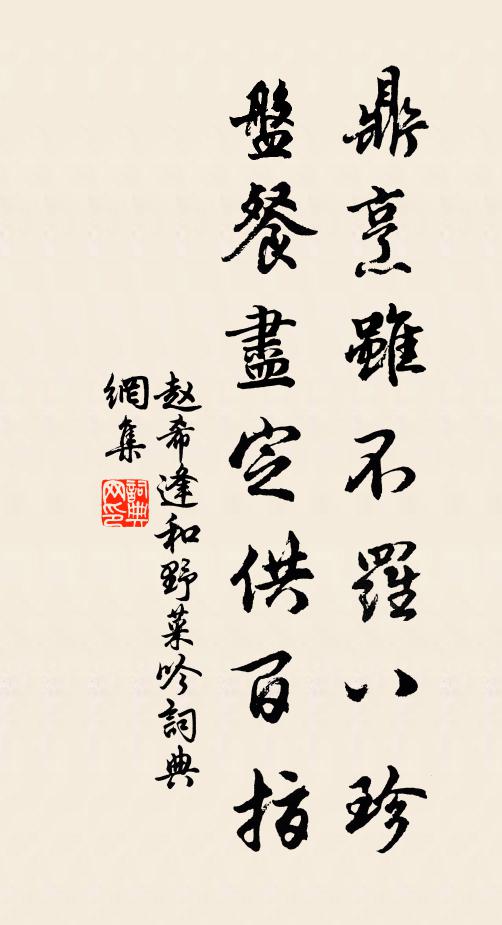 鼎烹雖不羅八珍
盤餐盡定供百指
赵希逢和野菜吟詞典
網集
詞典
网印